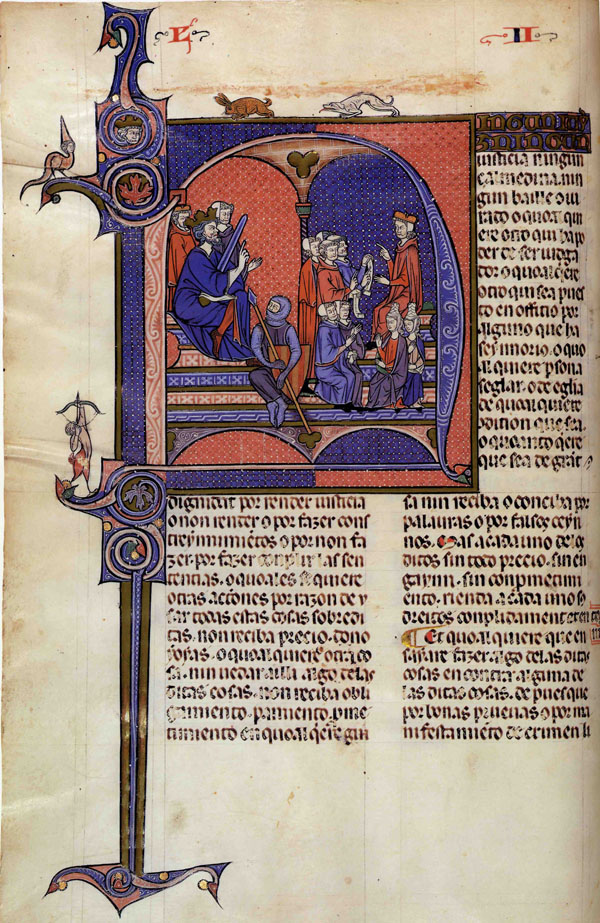 iusticia ni ningun
çalmedina nin
gun baille o iu
rado o quoal qui
ere otro qui ha po
der de ser iudga
dor o quoal q̇ere
otro qui sea pues
to en officio por
alguno que ha
seynnorio o quo
al quiere ꝑsona
seglar o de eglia
de quoal quiere
ꝯdition que sea
o quanto q̇ere
que sea de grāt
dignidat por render iusticia
o non render o por fazer cons
treynimientos o por non fa
zer por fazer conplir las sen
tencias o quoales se quiere
otras actiones por razon de y
sar todas estas cosas sobredi
tas non reciba precio dono
cosas o quoal quiere otra co
sa ni uedar ailla algo de las
ditas cosas non reciba obli
gamiento paramiento
timiento en quoal q̇ere gui
sa nin reciba o conciba por
palauras o por falsos seyn
nos Mas a cada uno de los
ditos sin todo precio sin en
gaynno sin conpimecim
ento rienda a cada uno so
dreito conplidament
¶ Et quoal quiere que en
sayare fazer algo de las ditas
cosas en contra alguna de
las ditas cosas depues que
por bonas prueuas o por ma
nifestamiēto de crimen li
II